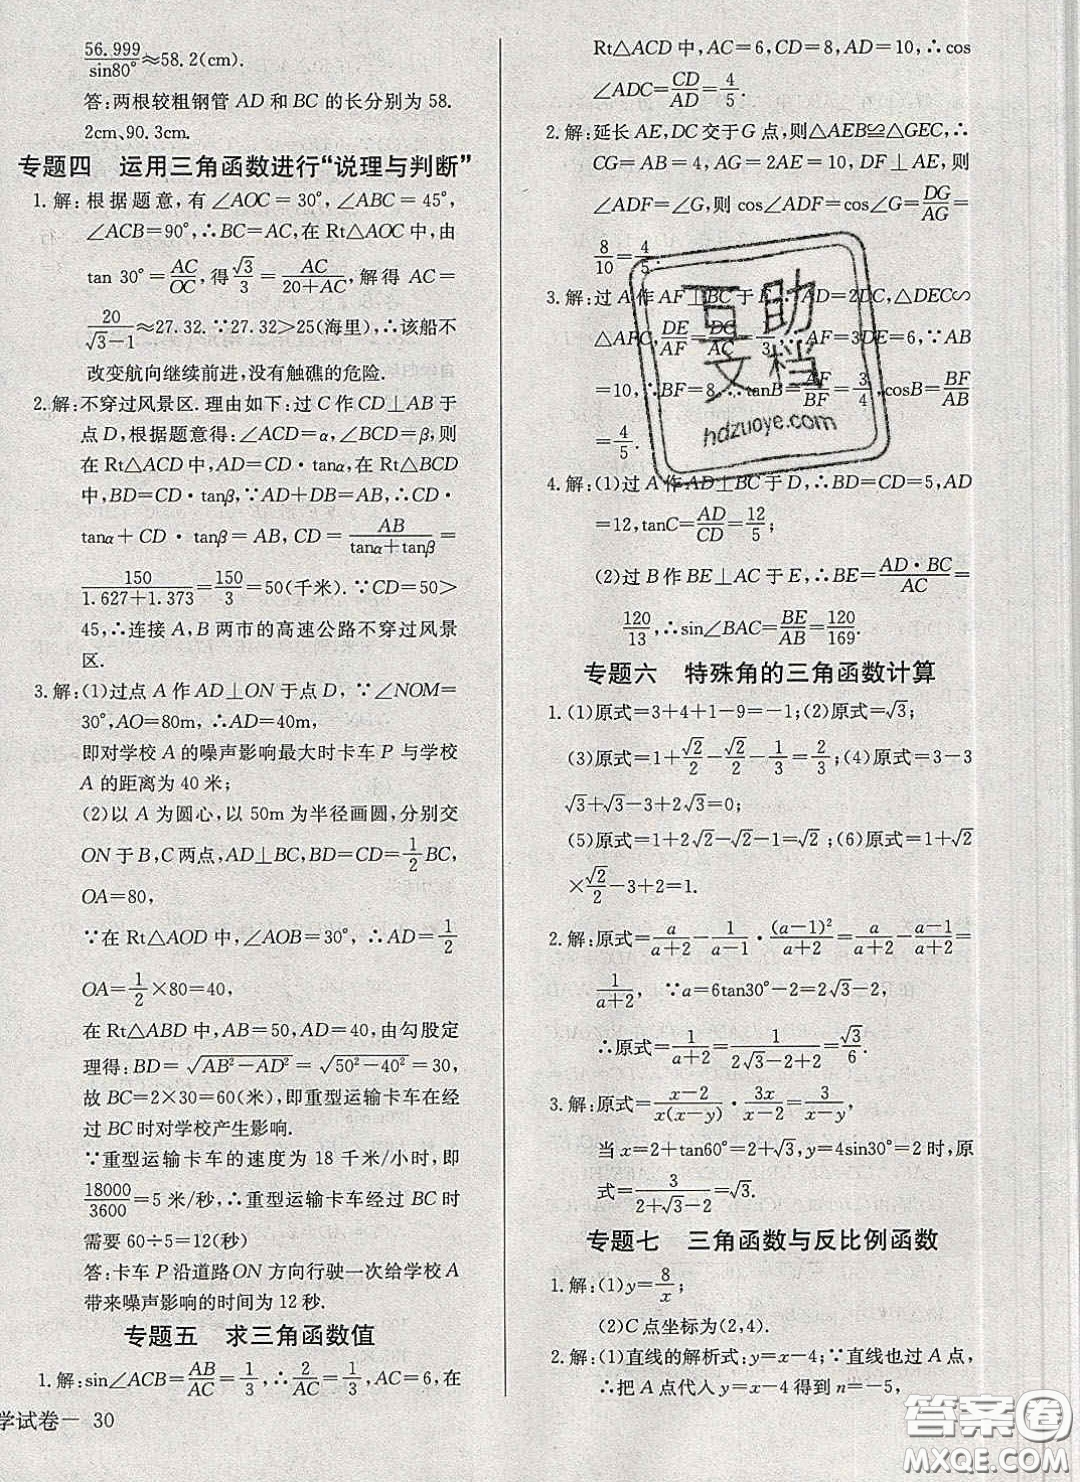 56.999/sin80°≈58.2(cm).
答:两根较粗钢管 AD 和 BC 的长分别为 58.
2cm、90.3cm.
专题四 运用三角函数进行“说理与判断”
1.解:根据题意,有∠AOC=30°,∠ABC=45°,
∠ACB=90°,∴BC=AC,在 Rt△AOC 中,由
tan 30°=AC/OC,得√3/3=AC/(20+AC),解得 AC=
20/(√3-1)≈27.32.∵27.32>25(海里),∴该船不
改变航向继续前进,没有触礁的危险.
2.解:不穿过风景区.理由如下:过 C 作 CD⊥AB 于
点 D,根据题意得:∠ACD=α,∠BCD=β,则
在 Rt△ACD 中,AD=CD·tanα,在 Rt△BCD
中,BD=CD·tanβ,∵AD+DB=AB,CD·
tanα+CD·tanβ=AB,CD=AB/(tanα+tanβ)=
150/(1.627+1.373)=150/3=50(千米).∵CD=50>
45,∴连接 A,B 两市的高速公路不穿过风景
区.
3.解:(1)过点 A 作 AD⊥ON 于点 D,∵∠NOM=
30°,AO=80m,∴AD=40m,
即对学校 A 的噪声影响最大时卡车 P 与学校
A 的距离为 40 米;
(2)以 A 为圆心,以 50m 为半径画圆,分别交
ON 于 B,C 两点,AD⊥BC,BD=CD=1/2BC,
OA=80,
∵在 Rt△AOD 中,∠AOB=30°,∴AD=1/2
OA=1/2×80=40,
在 Rt△ABD 中,AB=50,AD=40,由勾股定
理得:BD=√(AB²-AD²)=√(50²-40²)=30,
故 BC=2×30=60(米),即重型运输卡车在经
过 BC 时对学校产生影响.
∵重型运输卡车的速度为 18 千米/小时,即
18000/3600=5 米/秒,∴重型运输卡车经过 BC 时
需要 60÷5=12(秒)
答:卡车 P 沿道路 ON 方向行驶一次给学校 A
带来噪声影响的时间为 12 秒.
专题五 求三角函数值
1.解:sin∠ACB=AB/AC=1/3,∴2/AC=1/3,AC=6,在
学试卷— 30
Rt△ACD 中,AC=6,CD=8,AD=10,∴cos
∠ADC=CD/AD=4/5.
2.解:延长 AE,DC 交于 G 点,则△AEB≌△GEC,∴
CG=AB=4,AG=2AE=10,DF⊥AE,则
∠ADF=∠G,则 cos∠ADF=cos∠G=DG/AG=
8/10=4/5.
3.解:过 A 作 AF⊥BC 于 F,∵AD=2DC,△DEC∽
△AFC,DE/AF=DC/AC=1/3,∴AF=3DE=6,∵AB
=10,∴BF=8,∴tanB=AF/BF=3/4,cosB=BF/AB
=4/5.
4.解:(1)过 A 作 AD⊥BC 于 D,∴BD=CD=5,AD
=12,tanC=AD/CD=12/5;
(2)过 B 作 BE⊥AC 于 E,∴BE=AD·BC/AC=
120/13,∴sin∠BAC=BE/AB=120/169.
专题六 特殊角的三角函数计算
1.(1)原式=3+4+1-9=-1;(2)原式=√3;
(3)原式=1+√2/2-√2/2-1/3=2/3;(4)原式=3-3
√3+√3-3+2√3=0;
(5)原式=1+2√2-√2-1=√2;(6)原式=1+√2
×√2/2-3+2=1.
2.解:原式=a/(a+2)-1/(a-1)·(a-1)²/(a+2)=a/(a+2)-(a-1)/(a+2)=
1/(a+2), ∵a=6tan30°-2=2√3-2,
∴原式=1/(a+2)=1/(2√3-2+2)=√3/6.
3.解:原式=(x-2)/(x(x-y))·3x/(x-2)=3/(x-y),
当 x=2+tan60°=2+√3,y=4sin30°=2 时,原
式=3/(2+√3-2)=√3.
专题七 三角函数与反比例函数
1.解:(1)y=8/x;
(2)C 点坐标为(2,4).
2.解:(1)直线的解析式:y=x-4;∵直线也过 A 点,
∴把 A 点代人 y=x-4 得到 n=-5,
互助
文档
hdzuoye.com
答案圈
MXQE.COM